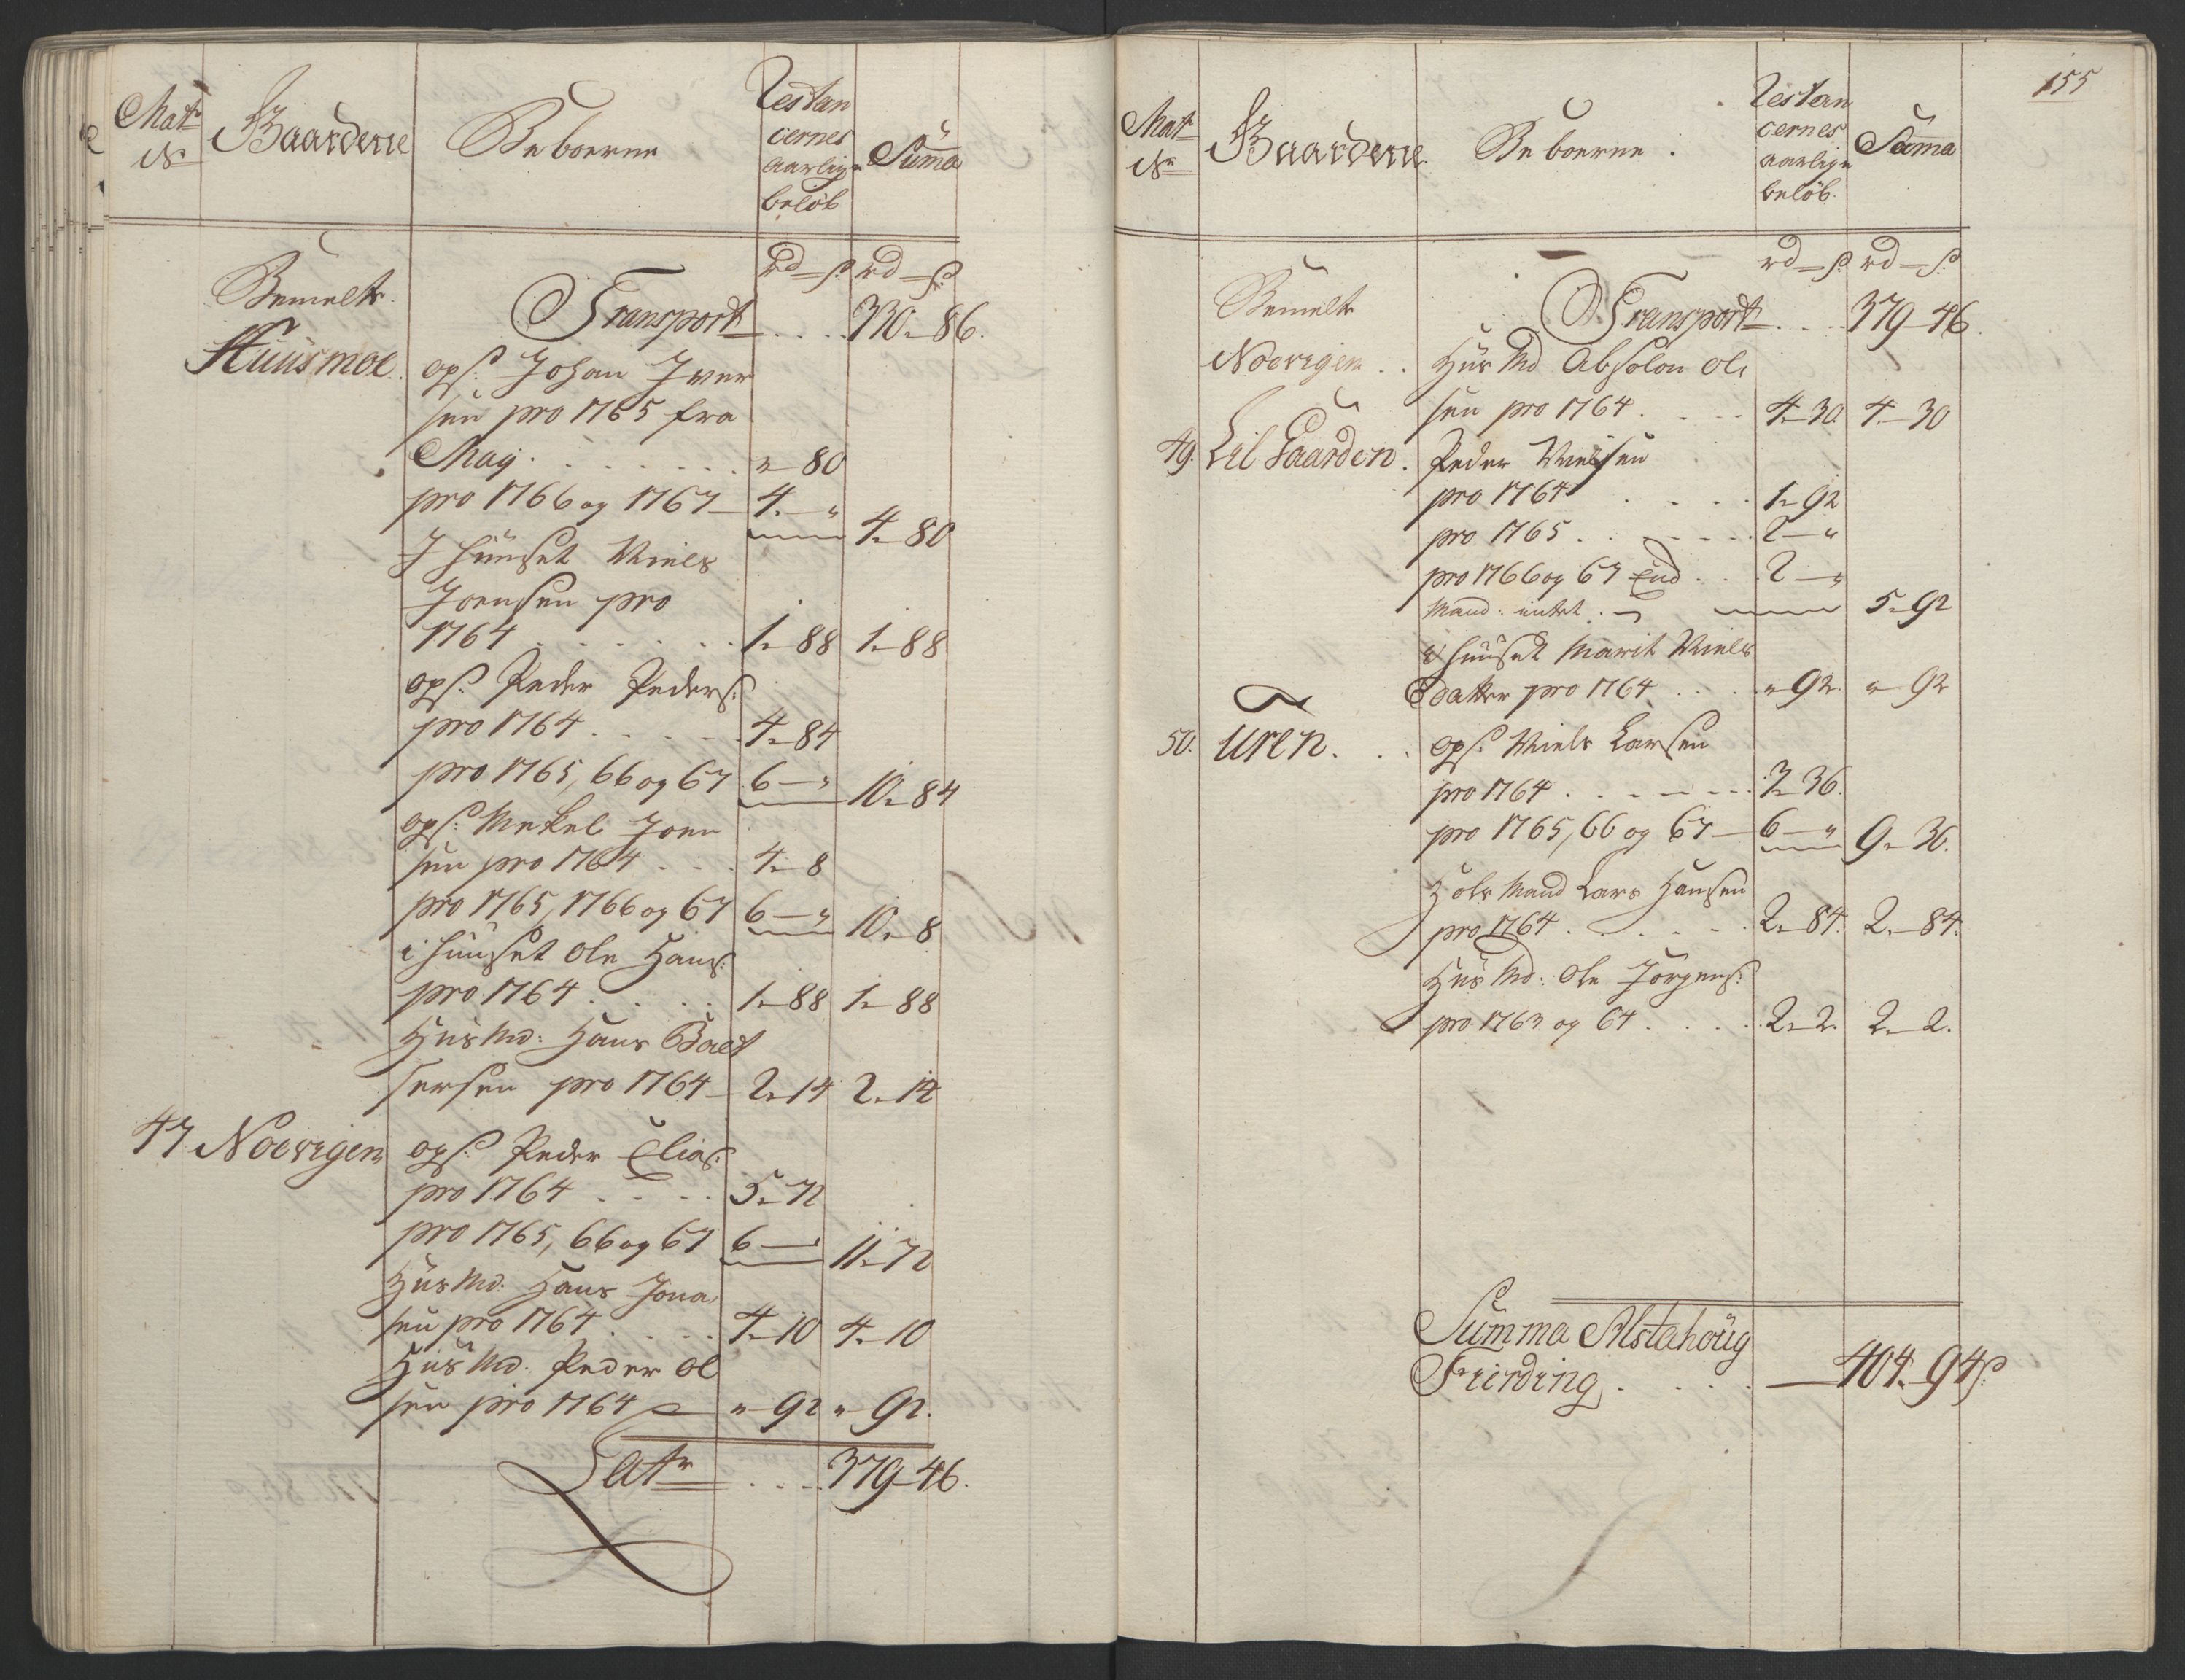 Mat:
No
Gaardene
Beboerne
Restan
cernes
aarlige
beløb
Suma
rd — s: rd — s:
Bemelte
Transport . . . . 330 - 86.
Huusmoe. ops: Johan Iver
sen pro 1765 fra
Maij . . . . . . . " 80
pro 1766 og 1767 — 4 - "
4 - 80
I huuset Niels
Joensen pro
1764 . . . . . . 1 - 88 1 - 88
ops: Peder Peders:
pro 1764 . . . . . 4 - 84
pro 1765, 66 og 67 6 — " 10 - 84
ops: Mekel Joen
sen pro 1764 . . . 4 - 8
pro 1765, 1766 og 67 6 — " 10 - 8
i huuset Ole Hans:
pro 1764 . . . . . 1 - 88 1 - 88
HuusMd: Hans Balt
sersen pro 1764 — 2 - 14 2 - 14
47 Noevigen ops: Peder Elias:
pro 1764 . . . . 5 - 72
pro 1765, 66 og 67 6 — " 11 - 72
HuusMd: Hans Jona
sen pro 1764 . . . . 4 - 10 4 - 10
HuusMd: Peder Ol
sen pro 1764 — " 92 " 92.
Latr . . . 379 - 46.
155
Mat:
No
Gaardene
Beboerne .
Restan
cernes
aarlige
beløb.
Suma
rd — s: rd — s:
Bemelte
Transport . . . . 379 - 46.
Noevigen . . HuusMd Absolon Ol
sen pro 1764 . . . . 4 - 30 4 - 30
49. Lil Gaarden. Peder Nielsen
pro 1764 . . . . 1 - 92
pro 1765 . . . . . . 2 — "
pro 1766 og 67 End . . 2 — "
Mand: intet . — 5 - 92
i huuset Marit Niels
datter pro 1764 . . . . " 92. " 92
50. Uren. . . ops: Niels Larsen
pro 1764 . . . . . . . 3 - 36.
pro 1765, 66 og 67 — 6 — " 9 - 36.
Lars Hansen
pro 1764 . . . . . . 2 - 84. 2 - 84.
HuusMd: Ole Jørgens:
pro 1763 og 64 . . . . 2 - 2. 2 - 2.
Summa Alstahoug
Fierding . . . . — 404 - 94 s: